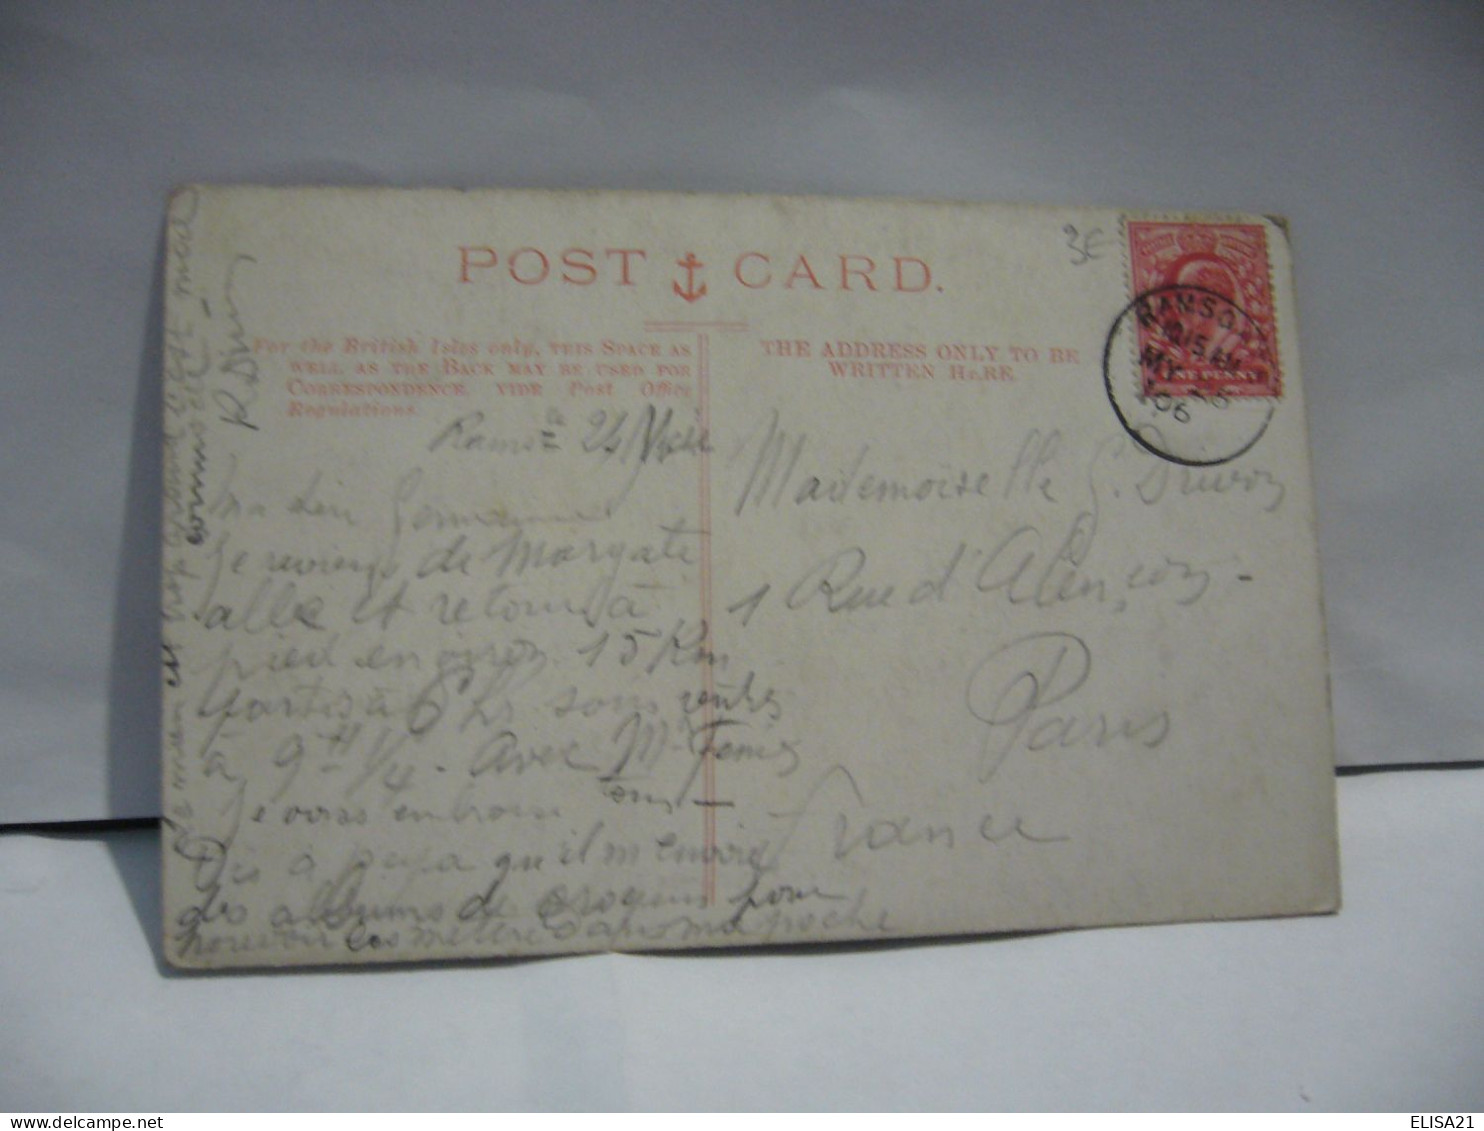 3€
POST CARD.
For the British Isles only, THIS SPACE AS
WELL AS THE BACK MAY BE USED FOR
CORRESPONDENCE, VIDE Post Office
Regulations.
THE ADDRESS ONLY TO BE
WRITTEN HERE
RAMSG
10 15 AM
MY
06
ONE PENNY
Rams 24
Ma Germaine
Je reviens de Margate
aller et retour à
pied environ 15 Km
partis à 6 hs som rentrés
à 9 H 1/4. Avec Mr
Je vous embrasse
Dis à papa qu'il m'envoie
des albums de croquis pour
pouvoir les mettre dans ma poche
le mien est trop grand c'est mal
commode
Mademoiselle G. Druon
1 Rue d'Alençon -
Paris
France
ELISA21